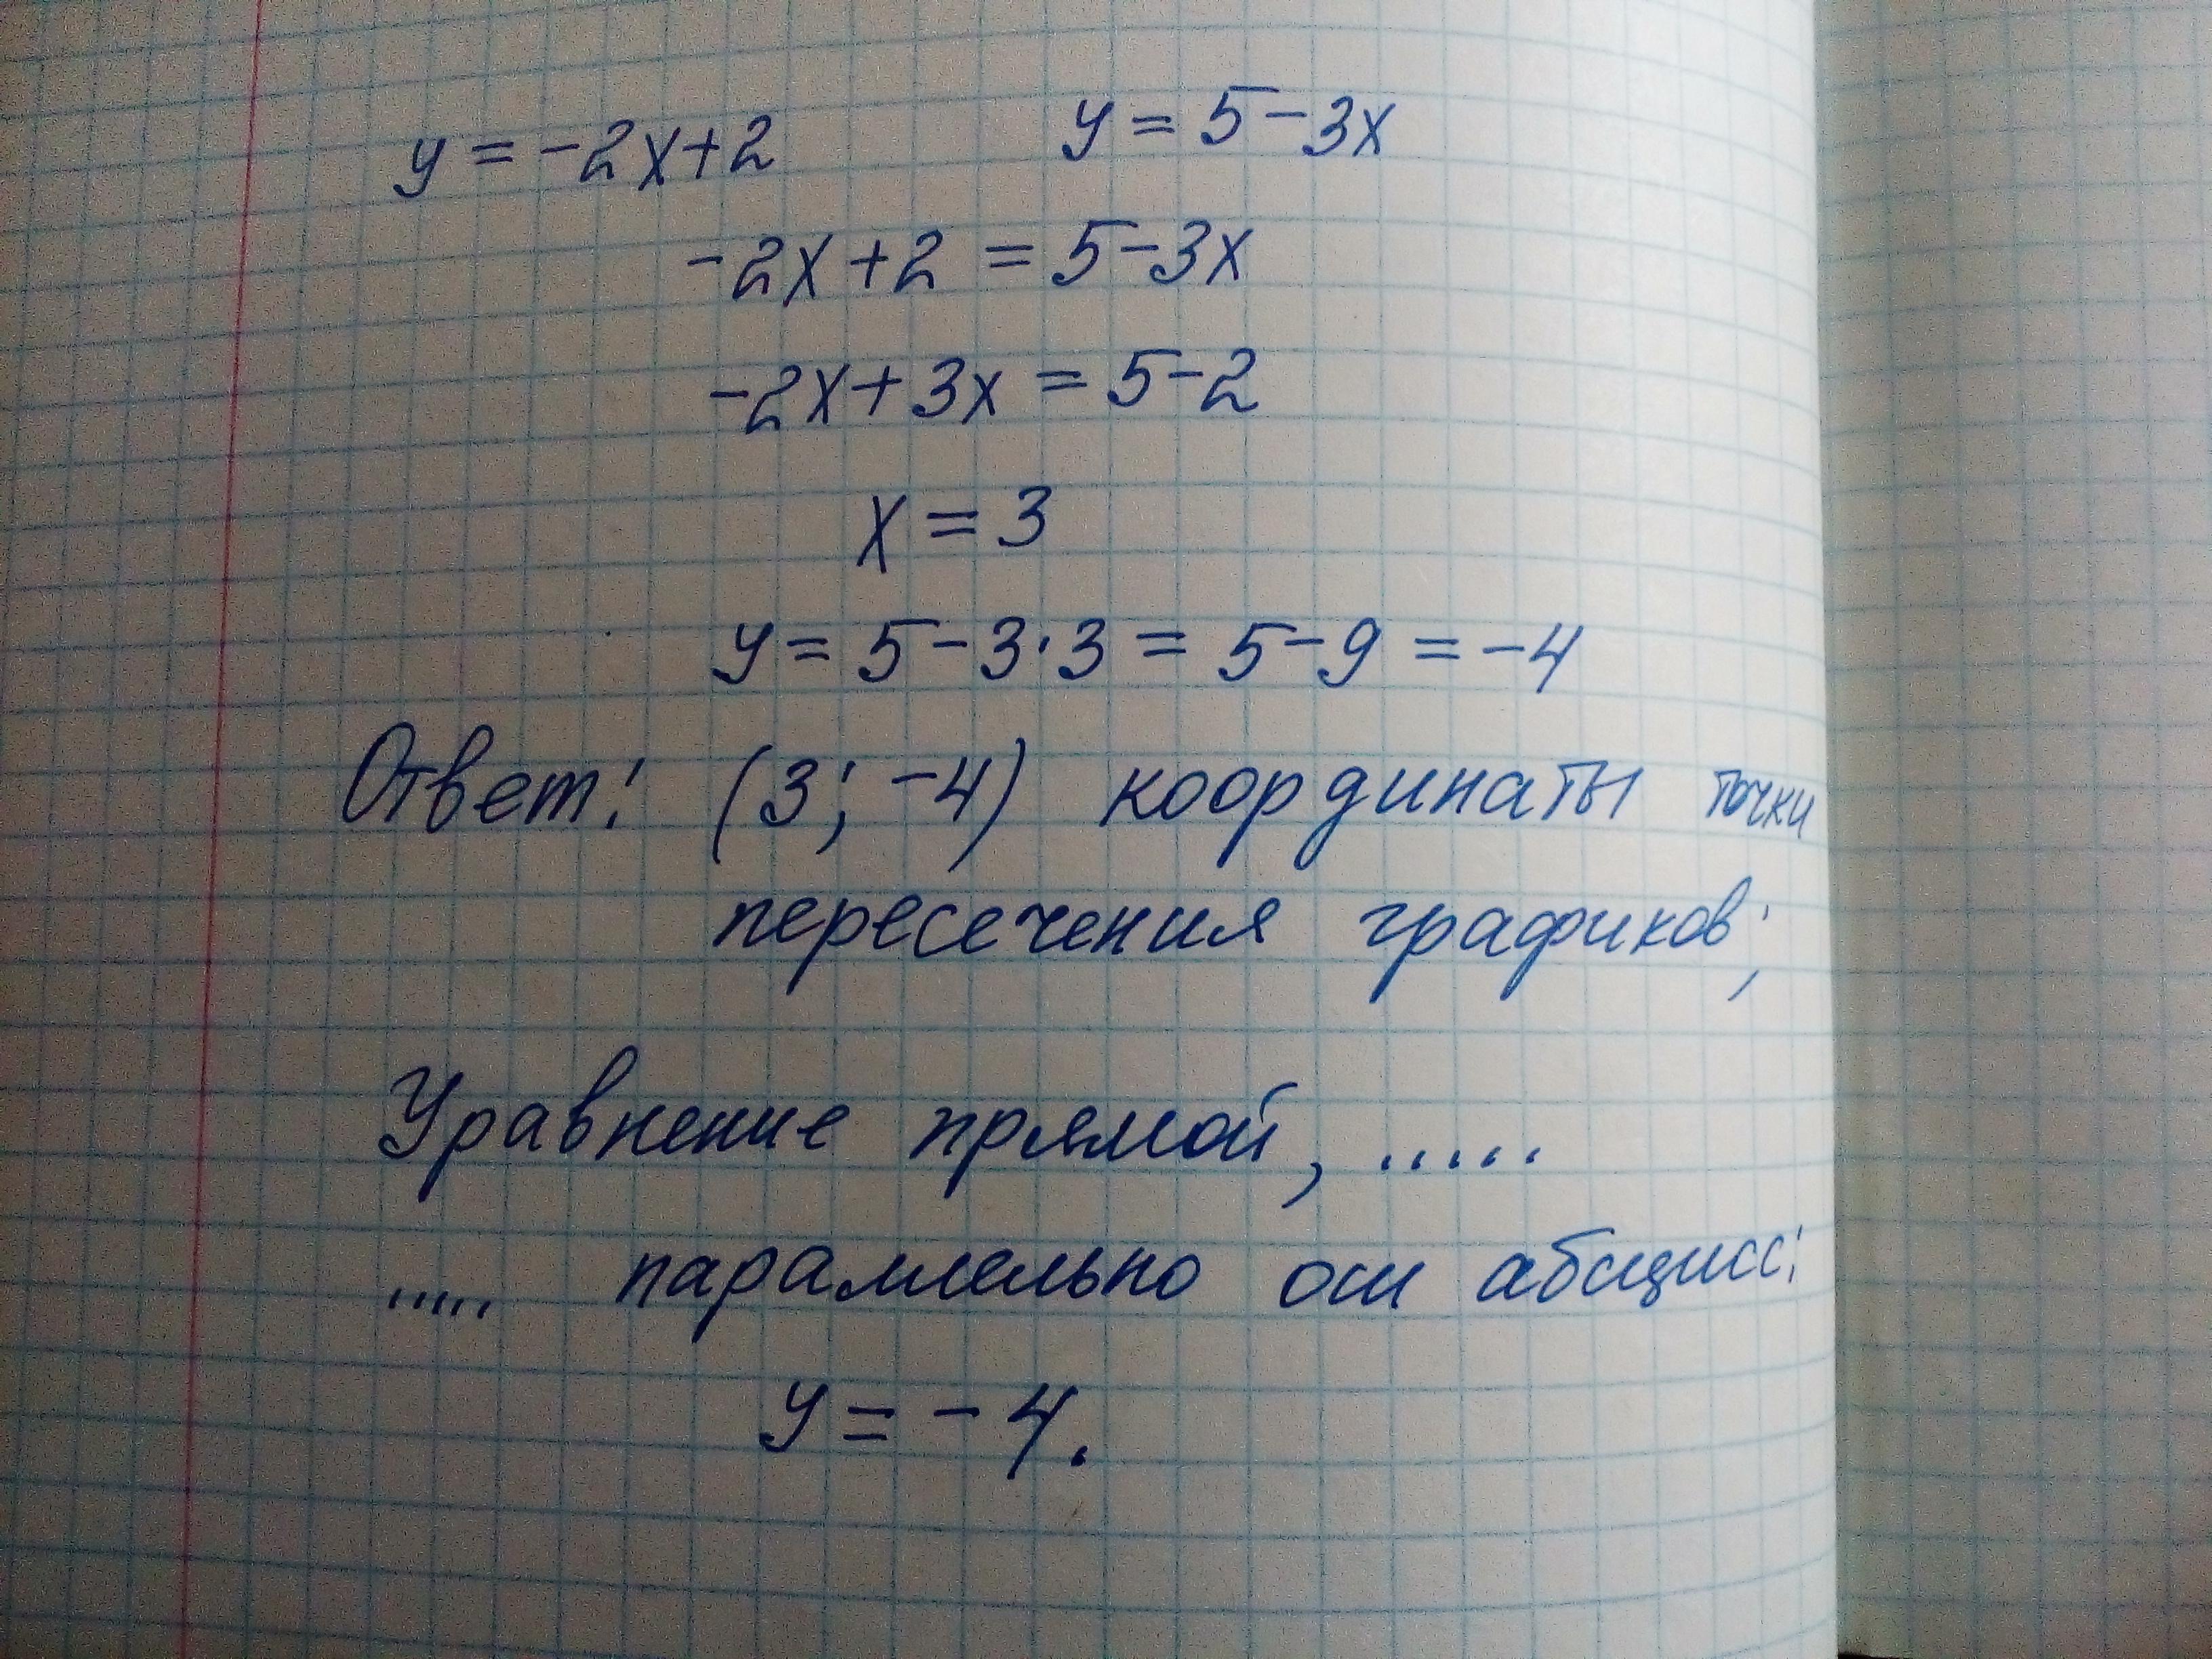 y = -2x+2 y = 5-3x
-2x+2 = 5-3x
-2x+3x = 5-2
x = 3
y = 5-3·3 = 5-9 = -4
Ответ: (3; -4) координаты точки
пересечения графиков;
Уравнение прямой, .....
..... параллельно оси абсцисс:
y = -4.